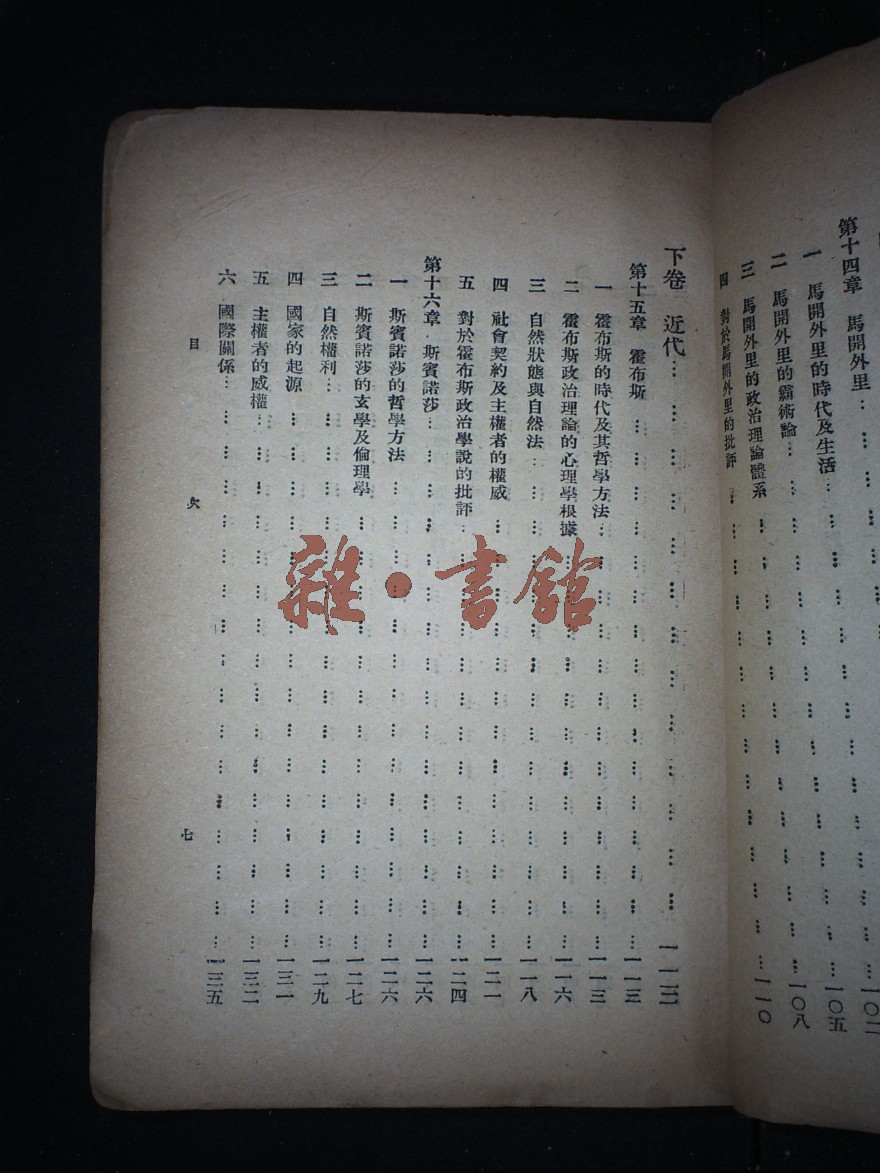 第十四章 馬開外里…一〇二
一 馬開外里的時代及生活…一〇五
二 馬開外里的霸術論…一〇八
三 馬開外里的政治理論體系…一一〇
四 對於馬開外里的批評
下卷 近代…一一三
第十五章 霍布斯…一一三
一 霍布斯的時代及其哲學方法…一一三
二 霍布斯政治理論的心理學根據…一一六
三 自然狀態與自然法…一一八
四 社會契約及主權者的權威…一二一
五 對於霍布斯政治學說的批評…一二四
第十六章 斯賓諾莎…一二六
一 斯賓諾莎的哲學方法…一二六
二 斯賓諾莎的玄學及倫理學…一二七
三 自然權利…一二九
四 國家的起源…一三一
五 主權者的威權…一三二
六 國際關係…一三五
目 次 七
雜·書館